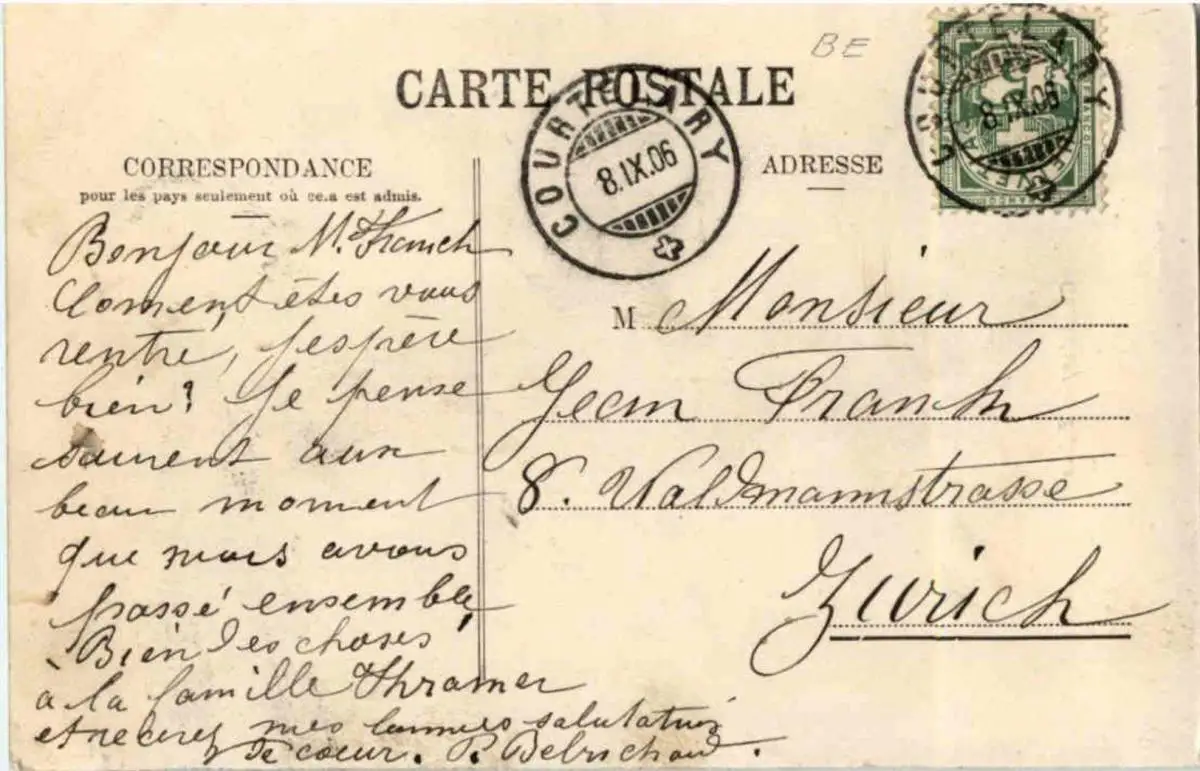 BE
CARTE POSTALE
COURTELARY
8.IX.06
COURTELARY
8.IX.06
CORRESPONDANCE
pour les pays seulement où ce.a est admis.
ADRESSE
Bonjour M. Franch
Coment êtes vous
rentré, j'espère
bien? Je pense
souvent aux
beau moment
que nous avons
passé ensemble,
Bien des choses
à la famille
et recevez mes salutation
de coeur. P.
M Monsieur
Jean Frank
8. Waldmannstrasse
Zurich